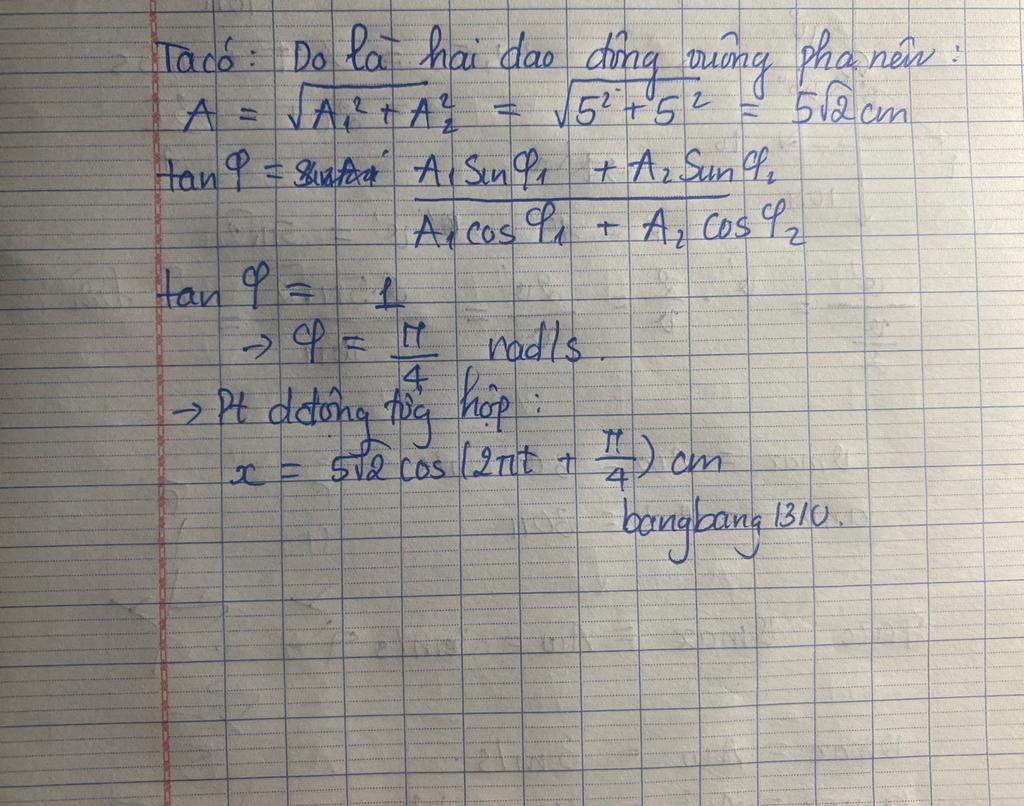 Ta có: Do là hai dao động vuông pha nên:
A = √(A₁² + A₂²) = √(5² + 5²) = 5√2 cm
tan φ = (A₁ sin φ₁ + A₂ sin φ₂) / (A₁ cos φ₁ + A₂ cos φ₂)
tan φ = 1
→ φ = π/4 rad/s.
→ Pt dđộng tổg hợp:
x = 5√2 cos(2πt + π/4) cm
bangbang1310.